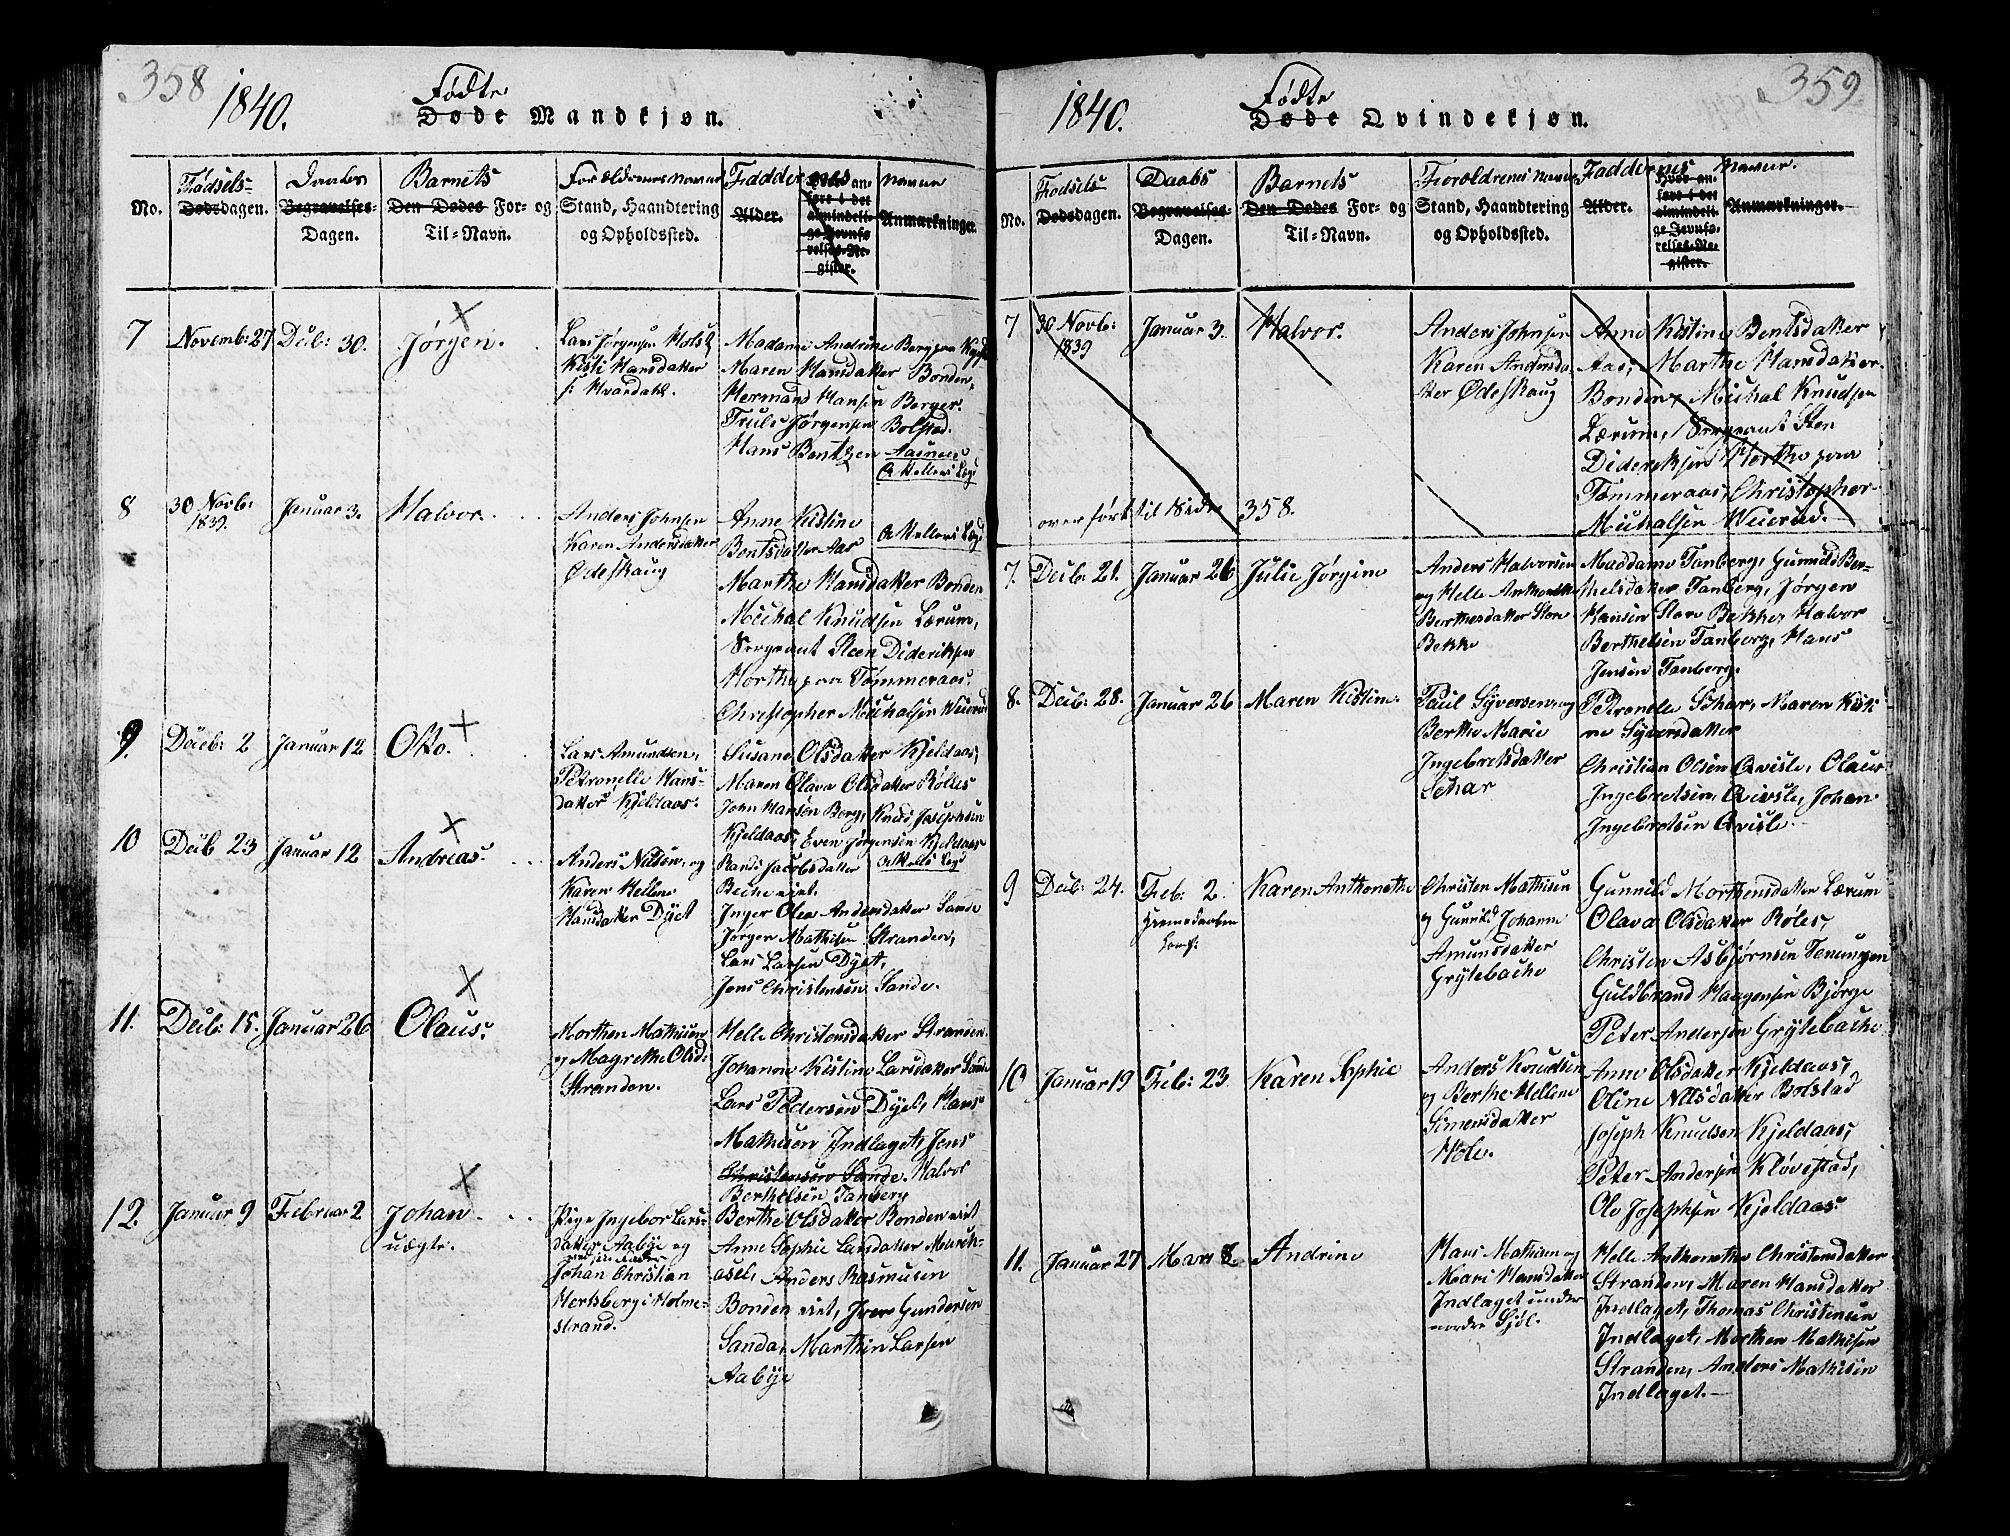 358
1840.
Fødte
Døde Mandkjøn.
No.
Fødsels-
Dødsdagen.
Daabs
Begravelses-
Dagen.
Barnets
Den Dødes For- og
Til-Navn.
Forældrenes Navne
Stand, Haandtering
og Opholdssted.
Faddernes Navne
Alder.
Hvor an-
føre i det
almindeli-
ge Jevnfø-
relses-Re-
gister.
Anmærkninger.
7
Novemb: 27
Decb: 30.
Jørgen.
Lars Jørgensen Holst
Kisti Hansdatter
Hvardahl.
Madame Andrine Berg paa
Maren Hansdatter Bonden,
Hermand Hansen Berger.
Truls Jørgensen Bolstad.
Hans Bentzen Aasnes
8
30 Novb:
1839.
Januar 3.
Halvor.
Anders Johnsen
Karen Andersdatter
Ødeskaug
Anne Kistine
Bentsdatter Aas
Marthe Hansdatter Bonden
Michal Knudsen Lærum,
Sergeant Steen Dideriksen
Horthe paa Tømmeraas,
Christopher Michalsen Wiierud
9.
Decb: 2
Januar 12
Otto.
Lars Amundsen,
Petronelle Hans-
datter, Kjeldaas.
Susane Olsdatter Kjeldaas,
Maren Olava Olsdatter Røllés
John Hansen Berg, Knud Josephsen
Kjeldaas, Even Jørgensen Kjeldaas
10
Decb 23
Januar 12
Andreas.
Anders Nilsen, og
Karen Hellene
Hansdatter Dyet
Randi Jacobsdatter
Beche eiet.
Inger Olea Andersdatter Sande
Jørgen Mathisen Stranden,
Lars Larsen Dyet,
Jens Christensen Sande.
11.
Decb: 15.
Januar 26
Olaus.
Morthen Mathisen
og Magrethe Olsd:
Stranden.
Helle Christensdatter Stranden
Johanne Kistine Larsdatter Sande
Lars Pedersen Dyet, Hans
Mathisen Indlaget, Jens
Christensen Sande. Halvor
Berthelsen Tanberg
12.
Januar 9
Februar 2
Johan
uægte.
Pige Ingebor Lars-
datter Aabye og
Johan Christian
Hertsberg i Holme-
strand.
Berthe Olsdatter Bonden eiet
Anne Sophie Larsdatter March-
asel, Anders Rasmusen
Bonden eiet, Iver Gundersen
Sanda, Marthin Larsen
Aabye
359
1840.
Fødte
Døde Qvindekjøn.
No.
Fødsels-
Dødsdagen.
Daabs
Begravelses-
Dagen.
Barnets
Den Dødes For- og
Til-Navn.
Forældrenes Navne
Stand, Haandtering
og Opholdssted.
Faddernes Navne.
Alder.
Hvor an-
føre i det
almindeli-
ge Jevnfø-
relses-Re-
gister.
Anmærkninger.
7
30 Novb:
1839
Januar 3.
Halvor.
Anders Johnsen
Karen Andersda-
tter Ødeskaug
Anne Kistine Bentsdatter
Aas, Marthe Hansdatter
Bonden, Michal Knudsen
Lærum, Sergeant Sten
Dideriksen Horthe paa
Tømmeraas, Christopher
Michalsen Wiierud.
overført til Side 358.
7.
Decb: 21.
Januar 26
Julie Jørgine
Anders Halvorsen
og Helle Anthonette
Berthesdatter Store
Bekke
Maddame Tanberg, Gunnild Ber-
thelsdatter Tanberg, Jørgen
Hansen Store Bekke, Halvor
Berthelsen Tanberg, Hans
Jensen Tanberg.
8.
Decb: 28.
Januar 26
Maren Kistine
Paul Syversen og
Berthe Marie
Ingebretsdatter
Schar
Petronelle Schar, Maren Kisti-
ne Syversdatter
Christian Olsen Qvisle, Olaus
Ingebretsen Qvisle, Johan
Ingebretsen Qvisle.
9
Decb: 24.
Feb: 2
Karen Anthonethe
Christen Mathisen
og Gunnild Johanne
Amunsdatter
Grytebache
Gunnild Morthensdatter Lærum
Olava Olsdatter Røles,
Christen Asbjørnsen Tenungen
Guldbrand Haagensen Bjørge
Peter Andersen Grytebache
10
Januar 19
Feb: 23
Karen Sophie
Anders Knudsen
og Berthe Hellene
Simensdatter
Hole.
Anne Olsdatter Kjeldaas,
Oline Nilsdatter Bolstad
Joseph Knudsen Kjeldaas,
Peter Andersen Kløvestad,
Ole Josephsen Kjeldaas.
11.
Januar 27
Marts 8.
Andrine
Hans Mathisen og
Mari Hansdatter
Indlaget under
nordre Gjøl.
Helle Anthonethe Christensdatter
Stranden, Maren Hansdatter
Indlaget, Thomas Christensen
Indlaget, Morthen Mathisen
Stranden, Anders Mathisen
Indlaget.